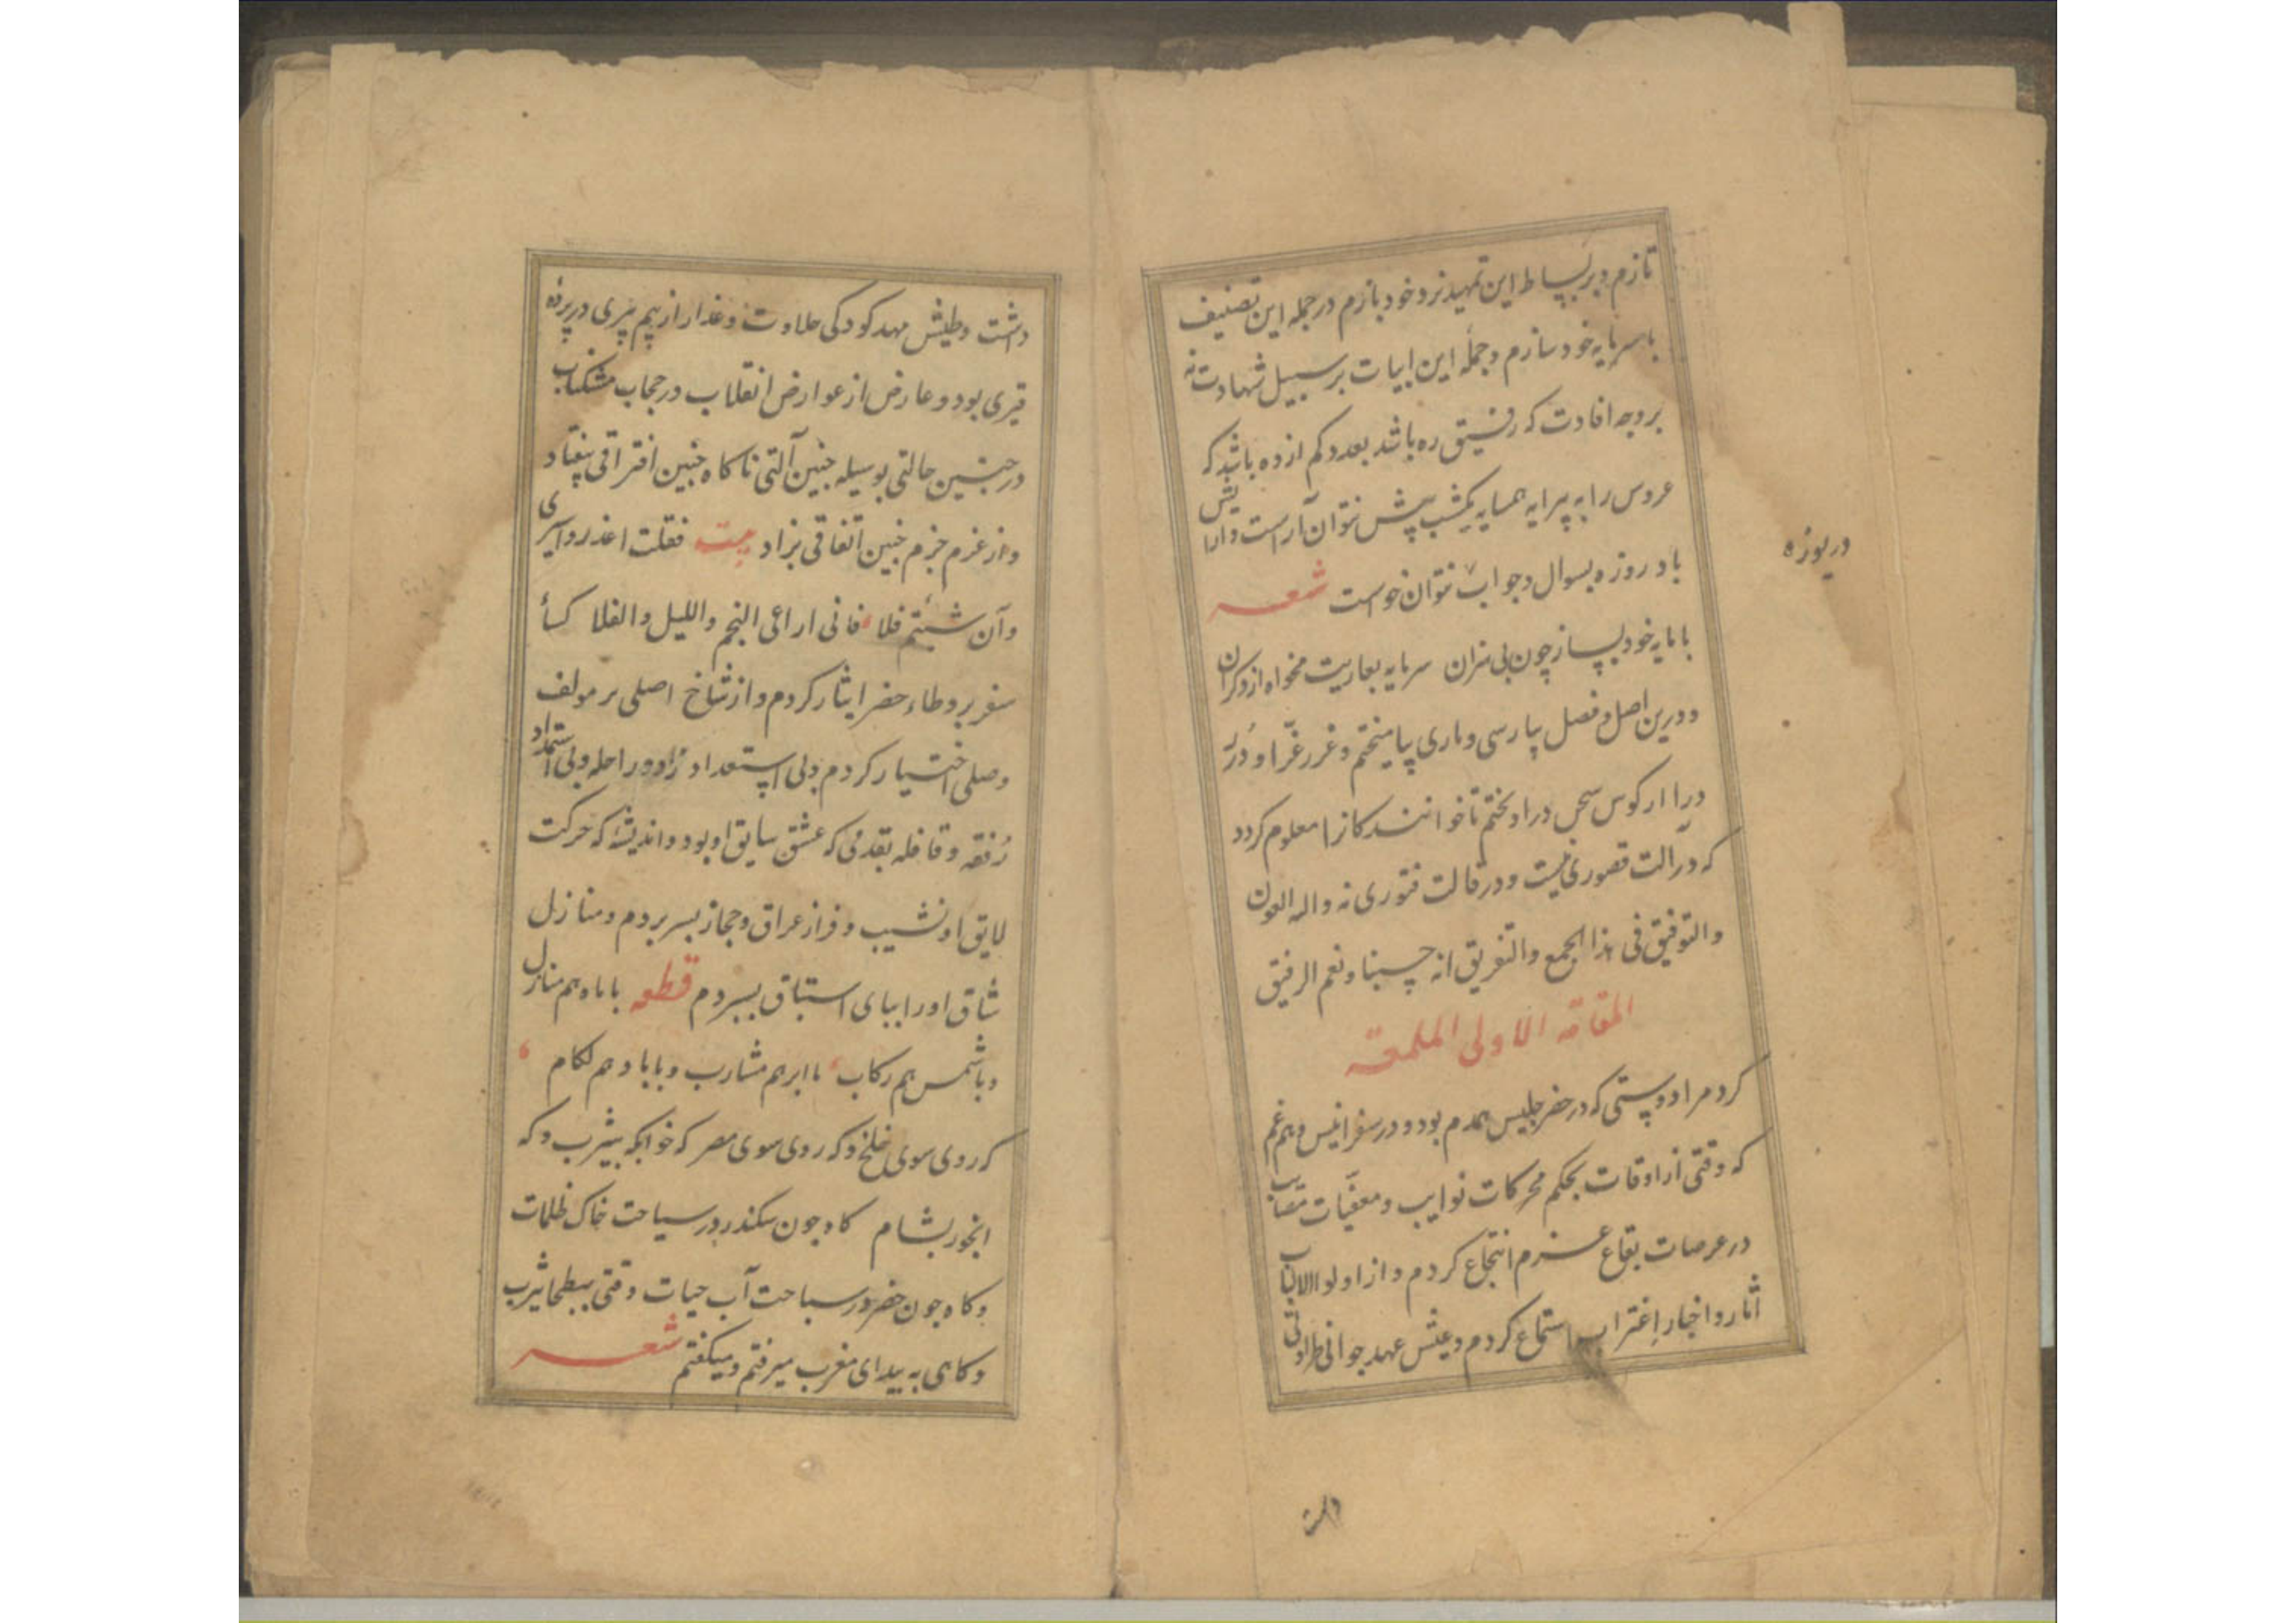 تازم و بر بساط این تمهید نرد خود بازم در جمله این تصنیف
با سرمایه خود سازم و جمله این ابیات بر سبیل شهادت نه
بر وجه افادت که رفیق ره باشد بعدد کم از ده باشد که
عروس را به پیرایه همسایه یکشب پیش نتوان آراست و ارایش
باد روزه بسوال و جواب نتوان خواست شعر
دریوزه
با مایه خود بساز چون بی هنران سرمایه بعاریت مخواه از دکران
و درین اصل و فصل پارسی و تازی بیامیختم و غرر غرّا و دُرَر
درا از کوس سخن دراویختم تا خوانندکانرا معلوم کردد
که در آلت قصوری نیست و در قالت فتوری نه و الله العون
والتوفیق فی هذا الجمع والتفریق انه حسبنا ونعم الرفیق
المقامه الاولی الملمعه
کرد مرا دوستی که در حضر جلیس همدم بود و در سفر انیس و هم غم
که وقتی از اوقات بحکم محرکات نوایب و معقبات مصایب
در عرصات بقاع عزم انتجاع کردم و از اولوا الالباب
آثار و اخبار اِغتراب استماع کردم و عیش عهد جوانی طراوتی
داشت و طیش مهد کودکی حلاوت و عذار از بیم پیری در پرده
قیری بود و عارض از عوارض انقلاب در حجاب مشکناب
در چنین حالتی بوسیله چنین آلتی ناکاه چنین افتراقی بیفتاد
و از عزم جزم چنین اتفاقی بزاد بیت فقلت اغدروا سیری
وآن شئتم فلا فانی اراعی النجم واللیل والفلا کسأ
سفر بر وطاء حضر ایثار کردم و از شاخ اصلی بر مولف
وصلی اختیار کردم و بی استعداد زاد و راحله و بی استمداد
رُفقه و قافله بقدمی که عشق سایق او بود و اندیشهٔ که حرکت
لایق او نشیب و فراز عراق و حجاز بسر بردم و منازل
شاق او را بپای استباق بسپردم قطعه با ماه هم منازل
و با شمس هم رکاب با ابر هم مشارب و با باد هم لکام
که روی سوی خلخ و که روی سوی مصر که خوابکه بیثرب و که
ابخور بشام کاه چون سکندر در سیاحت خاک ظلمات
و کاه چون خضر در سباحت آب حیات وقتی ببطحا یثرب
و کاهی به بیدای مغرب میرفتم و میکفتم شعر
داشت